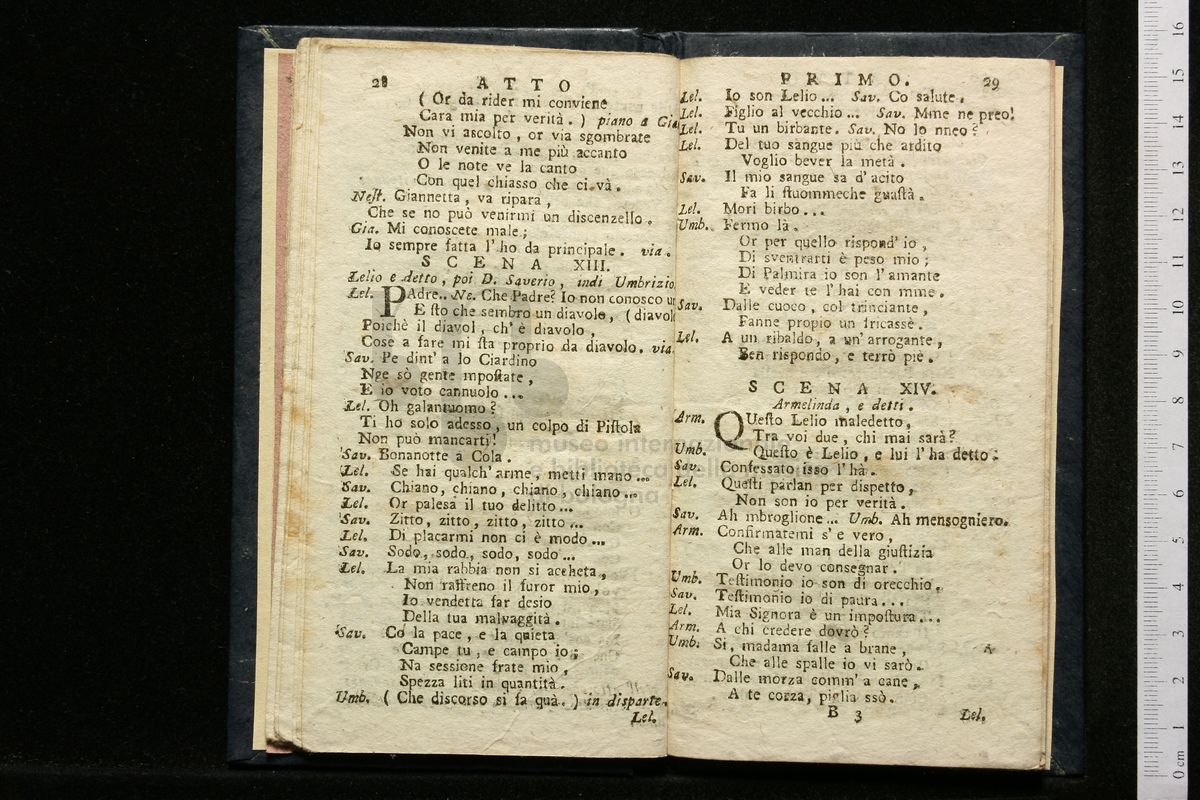 28 ATTO
( Or da rider mi conviene
Cara mia per verità. ) piano a Gia
Non vi ascolto, or via sgombrate
Non venite a me più accanto
O le note ve la canto
Con quel chiasso che ci và.
Nest. Giannetta, va ripara,
Che se no può venirmi un discenzello.
Gia. Mi conoscete male;
Io sempre fatta l'ho da principale. via.
SCENA XIII.
Lelio e detto, poi D. Saverio, indi Umbrizio
Lel. PAdre.. Ne. Che Padre? Io non conosco un
E sto che sembro un diavolo, (diavolo
Poichè il diavol, ch'è diavolo,
Cose a fare mi sta proprio da diavolo. via.
Sav. Pe dint' a lo Ciardino
Nge sò gente mpostate,
E io voto cannuolo...
Lel. Oh galantuomo?
Ti ho solo adesso, un colpo di Pistola
Non può mancarti!
Sav. Bonanotte a Cola.
Lel. Se hai qualch' arme, metti mano...
Sav. Chiano, chiano, chiano, chiano...
Lel. Or palesa il tuo delitto...
Sav. Zitto, zitto, zitto, zitto...
Lel. Di placarmi non ci è modo...
Sav. Sodo, sodo, sodo, sodo...
Lel. La mia rabbia non si accheta,
Non raffreno il furor mio,
Io vendetta far desio
Della tua malvaggità.
Sav. Co la pace, e la quieta
Campe tu, e campo io;
Na sessione frate mio,
Spezza liti in quantità.
Umb. ( Che discorso si fa quà. ) in disparte.
Lel.
PRIMO. 29
Lel. Io son Lelio... Sav. Co salute.
Lel. Figlio al vecchio... Sav. Mme ne preo!
Lel. Tu un birbante. Sav. No lo nneo?
Lel. Del tuo sangue più che ardito
Voglio bever la metà.
Sav. Il mio sangue sa d'acito
Fa li stuommeche guastà.
Lel. Mori birbo...
Umb. Fermo là.
Or per quello rispond' io,
Di sventrarti è peso mio;
Di Palmira io son l'amante
E veder te l'hai con mme.
Sav. Dalle cuoco, col trinciante,
Fanne propio un fricassè.
Lel. A un ribaldo, a un' arrogante,
Ben rispondo, e terrò piè.
SCENA XIV.
Armelinda, e detti.
Arm. QUesto Lelio maledetto,
Tra voi due, chi mai sarà?
Umb. Questo è Lelio, e lui l'ha detto:
Sav. Confessato isso l'hà.
Lel. Questi parlan per dispetto,
Non son io per verità.
Sav. Ah mbroglione... Umb. Ah mensogniero.
Arm. Confirmatemi s' e vero,
Che alle man della giustizia
Or lo devo consegnar.
Umb. Testimonio io son di orecchio,
Sav. Testimonio io di paura...
Lel. Mia Signora è un impostura...
Arm. A chi credere dovrò?
Umb. Si, madama falle a brane,
Che alle spalle io vi sarò.
Sav. Dalle morza comm' a cane,
A te corza, piglia ssò.
B 3 Lel.